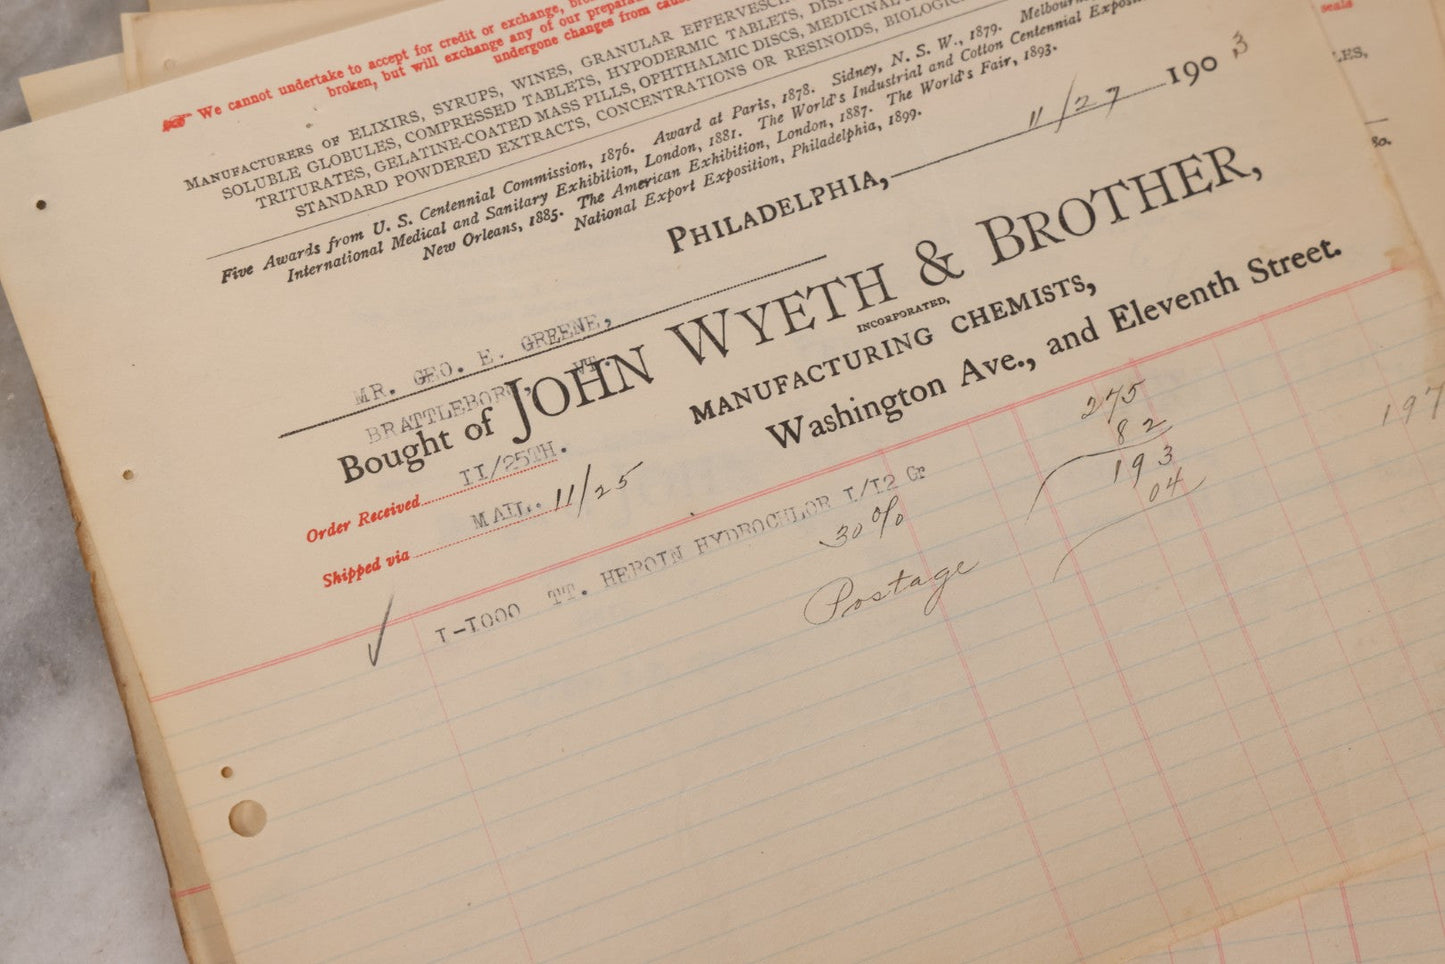 We cannot undertake to accept for credit or exchange,
broken, but will exchange any of our
undergone changes from
MANUFACTURERS OF ELIXIRS, SYRUPS, WINES, GRANULAR
SOLUBLE GLOBULES, COMPRESSED TABLETS, HYPODERMIC TABLETS,
TRITURATES, GELATINE-COATED MASS PILLS, OPHTHALMIC DISCS, MEDICINAL
STANDARD POWDERED EXTRACTS, CONCENTRATIONS OR RESINOIDS,
Five Awards from U. S. Centennial Commission, 1876. Award at Paris, 1878. Sidney, N. S. W., 1879.
International Medical and Sanitary Exhibition, London, 1881. The World's Industrial and Cotton Centennial
New Orleans, 1885. The American Exhibition, London, 1887. The World's Fair, 1893.
National Export Exposition, Philadelphia, 1899.
PHILADELPHIA, 11/27 1903
MR. GEO. E. GREENE,
BRATTLEBORO, VT.
Bought of JOHN WYETH & BROTHER,
INCORPORATED,
MANUFACTURING CHEMISTS,
Washington Ave., and Eleventh Street.
Order Received II/25TH.
Shipped via MAIL. 11/25
I-I000 TT. HEROIN HYDROCHLOR I/I2 Gr 275
30% 82
193
Postage 04
197
seals